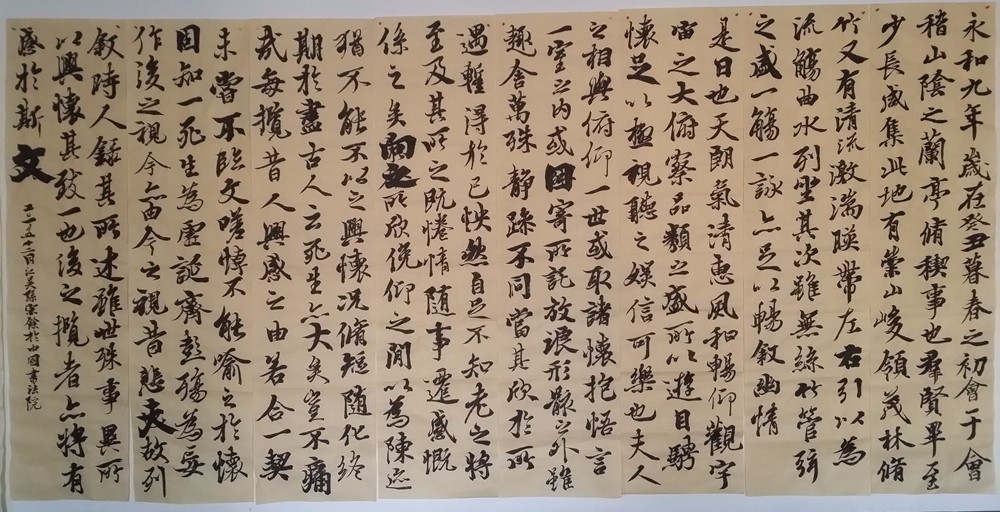 永和九年歲在癸丑暮春之初會于會
稽山陰之蘭亭脩禊事也群賢畢至
少長咸集此地有崇山峻領茂林脩
竹又有清流激湍暎帶左右引以為
流觴曲水列坐其次雖無絲竹管弦
之盛一觴一詠亦足以暢敘幽情
是日也天朗氣清惠風和暢仰觀宇
宙之大俯察品類之盛所以遊目騁
懷足以極視聽之娛信可樂也夫人
之相與俯仰一世或取諸懷抱悟言
一室之內或因寄所託放浪形骸之外雖
趣舍萬殊靜躁不同當其欣於所
遇蹔得於己怏然自足不知老之將
至及其所之既惓情隨事遷感慨
係之矣向之所欣俛仰之閒以為陳迹
猶不能不以之興懷況脩短隨化終
期於盡古人云死生亦大矣豈不痛
哉每攬昔人興感之由若合一契
未嘗不臨文嗟悼不能喻之於懷
固知一死生為虛誕齊彭殤為妄
作後之視今亦由今之視昔悲夫故列
敘時人錄其所述雖世殊事異所
以興懷其致一也後之攬者亦將有
感於斯文
於中國書法院